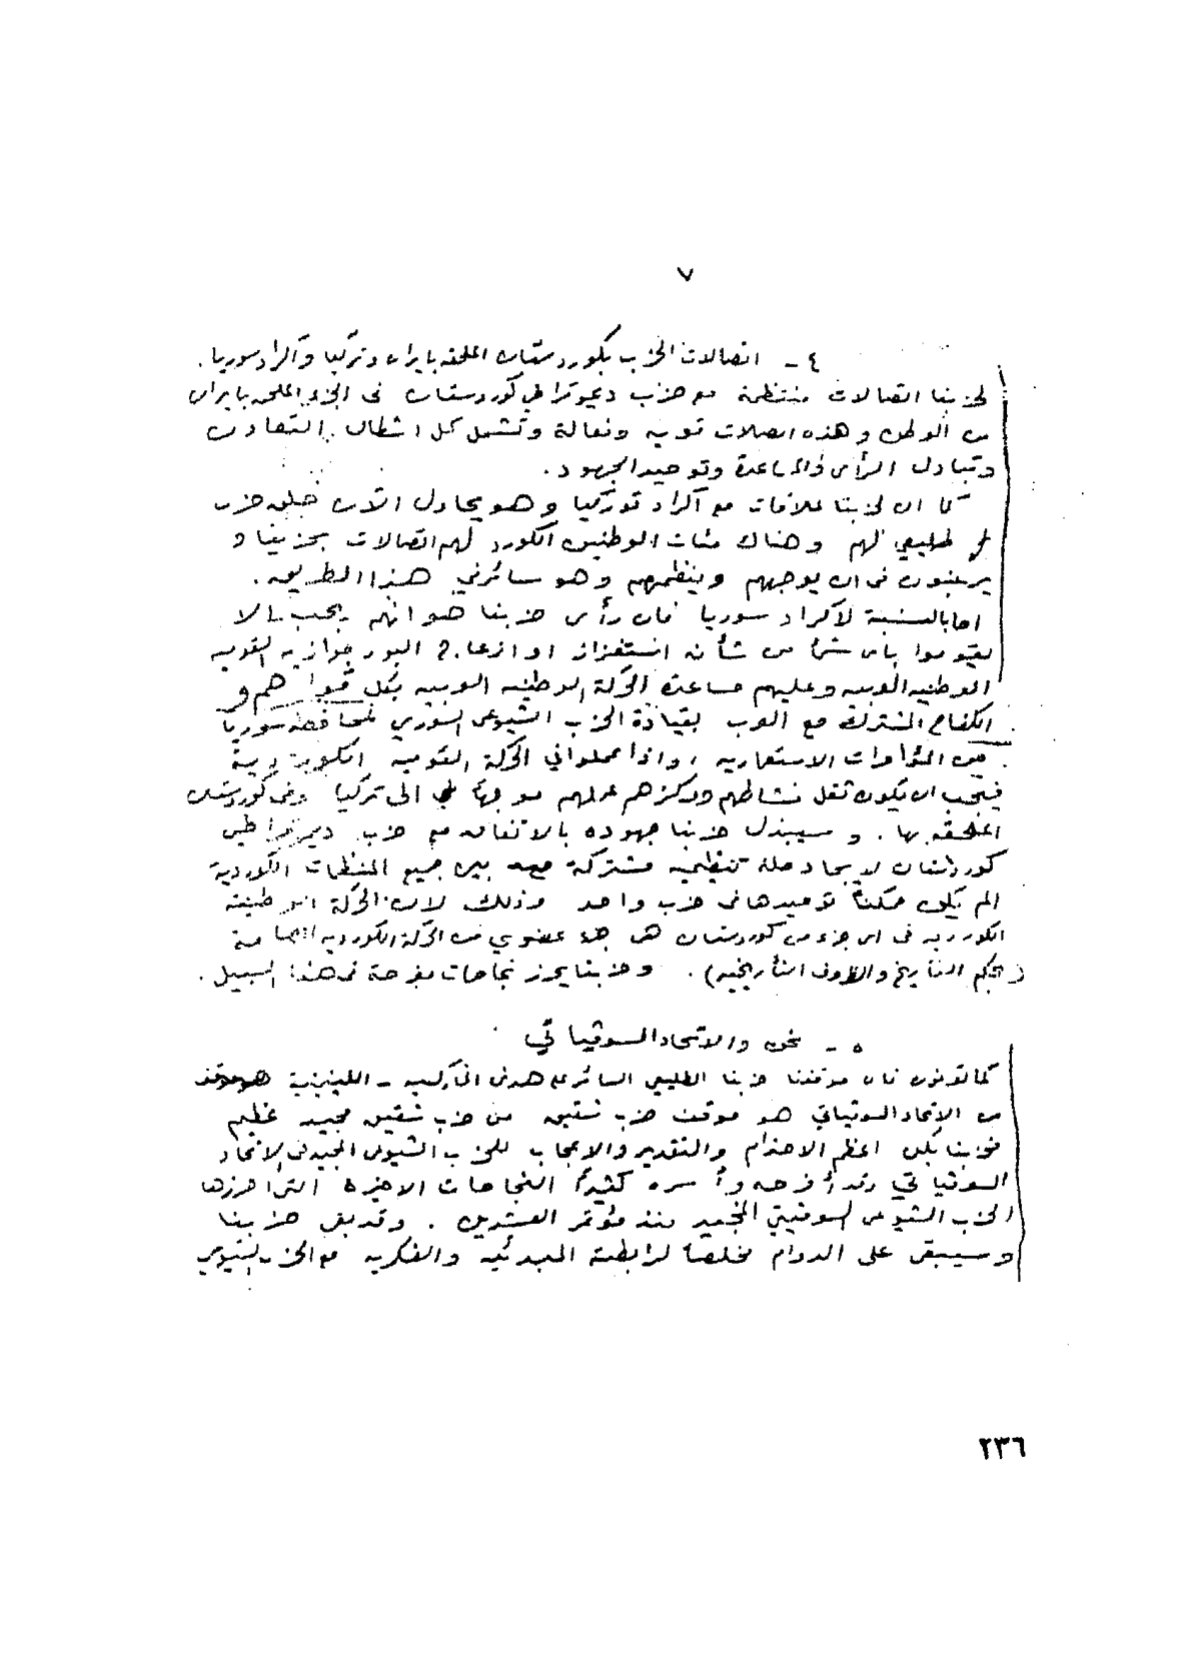 ٧
٤ - اتصالات الحزب بكوردستان الملحقه بايران وتركيا وآكراد سوريا .
لحزبنا اتصالات منتظمة مع حزب ديموقراطي كوردستان فى الجزء الملحق بايران
من الوطن وهذه اتصلات قويه وفعالة وتشمل كل اشكال التعاون
وتبادل الرأى والمساعدة وتوحيد الجهود .
كما ان لحزبنا علاقات مع آكراد توركيا وهو يحاول الآن خلق حزب
طليعي لهم وهناك مئات الوطنيين الكورد لهم اتصالات بحزبنا و
يرغبون فى ان يوجههم وينظمهم وهو سائر في هذا الطريق .
اما بالنسبة لآكراد سوريا فان رأى حزبنا هو انهم يجب الا
يقوموا باى شئ من شأنه استفزاز او ازعاج البورجوازيه القوميه
الوطنيه العربيه وعليهم مساعدة الحركة الوطنيه العربيه بكل قواهم و
الكفاح المشترك مع العرب بقيادة الحزب الشيوعى السوري لمحافظة سوريا
من المؤامرات الاستعماريه ، واذا عملوا في الحركة القوميه الكوردية
فيجب ان يكون ثقل نشاطهم ومركز عملهم موجها الى تركيا وفى كوردستان
الملحقه بها . وسيبذل حزبنا جهوده بالاتفاق مع حزب ديموقراطي
كوردستان لايجاد صلة تنظيميه مشتركة بين جميع المنظمات الكوردية
الم يكن ممكنا توحيدها فى حزب واحد وذلك لان الحركة الوطنيه
الكورديه فى اى جزء من كوردستان هى جزء عضوي من الحركة الكورديه العامة
( بحكم التأريخ والظروف التأريخيه ) . وحزبنا يحرز نجاحات مفرحة فى هذا السبيل .
٥ - نحن والاتحاد السوڤياتي
كما تعرفون فان موقفنا حزبنا الطليعي السائر على هدى الماركسيه - اللينينية هو موقف
من الاتحاد السوڤياتي هو موقف حزب شقيق من حزب شقيق مجيد عظيم
فحزبنا يكن اعظم الاحترام والتقدير والاعجاب للحزب الشيوعى المجيد فى الاتحاد
السوڤياتي وقد أفرحه وأسره كثيراً النجاحات الاخيرة التى احرزها
الحزب الشيوعى السوفييتي المجيد منذ مؤتمر العشرين . وقد بقى حزبنا
وسيبقى على الدوام مخلصاً لرابطته المبدئيه والفكريه مع الحزب الشيوعي
٢٣٦